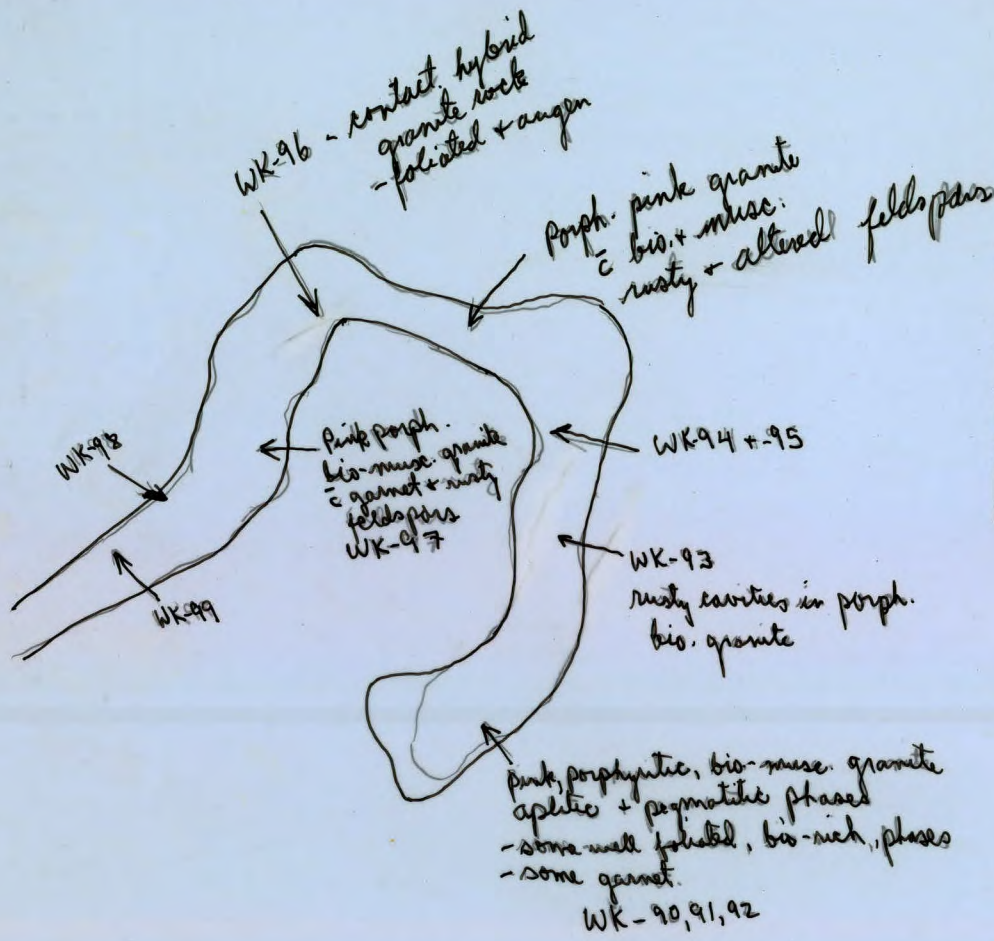 WK-96 - contact. hybrid
granite rock
- foliated + augen
Porph. pink granite
c̄ bio. + musc.
rusty + altered feldspars
WK-98
Pink porph.
bio-musc. granite
c̄ garnet + rusty
feldspars
WK-97
WK-94 + -95
WK-99
WK-93
rusty cavities in porph.
bio. granite
pink, porphyritic, bio-musc. granite
aplitic + pegmatitic phases
- some well foliated, bio-rich, phases
- some garnet.
WK-90, 91, 92